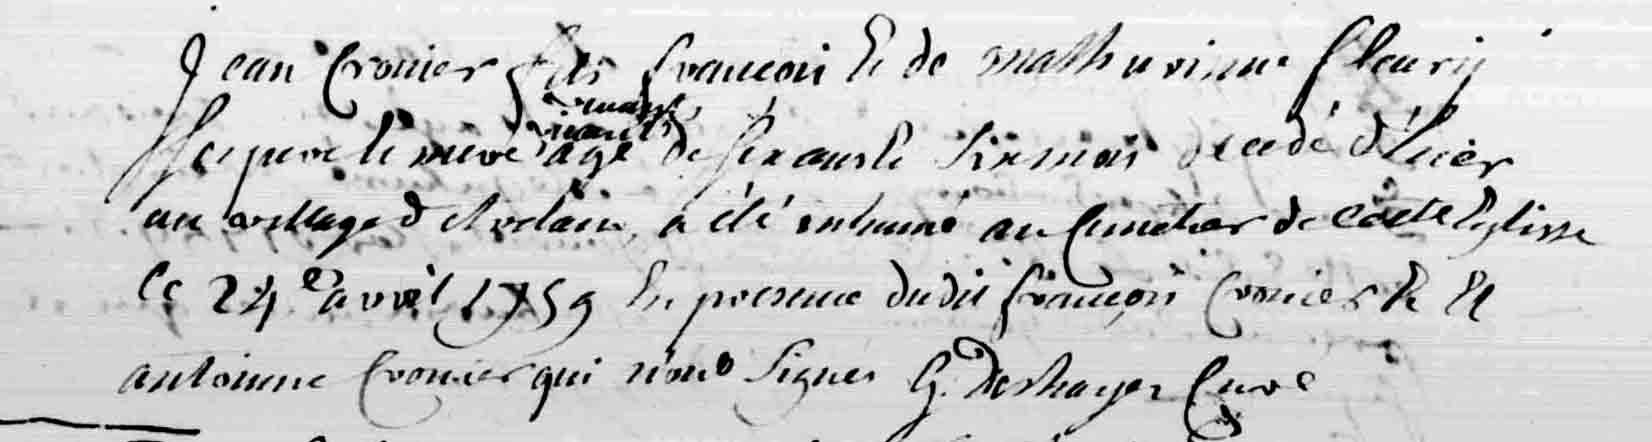 Jean Cronier fils francois Et de Mathurinne fleurij
Ses pere et mere vivants agé de six ans Et Six mois decedé d'hier
au village d ardain, a été inhumé au Cimetier de cette Eglisse
le 24e avril 1759 En presence dudit francois Cronier Et
antoinne Cronier qui n'ont Signer G. Deshayes Curé